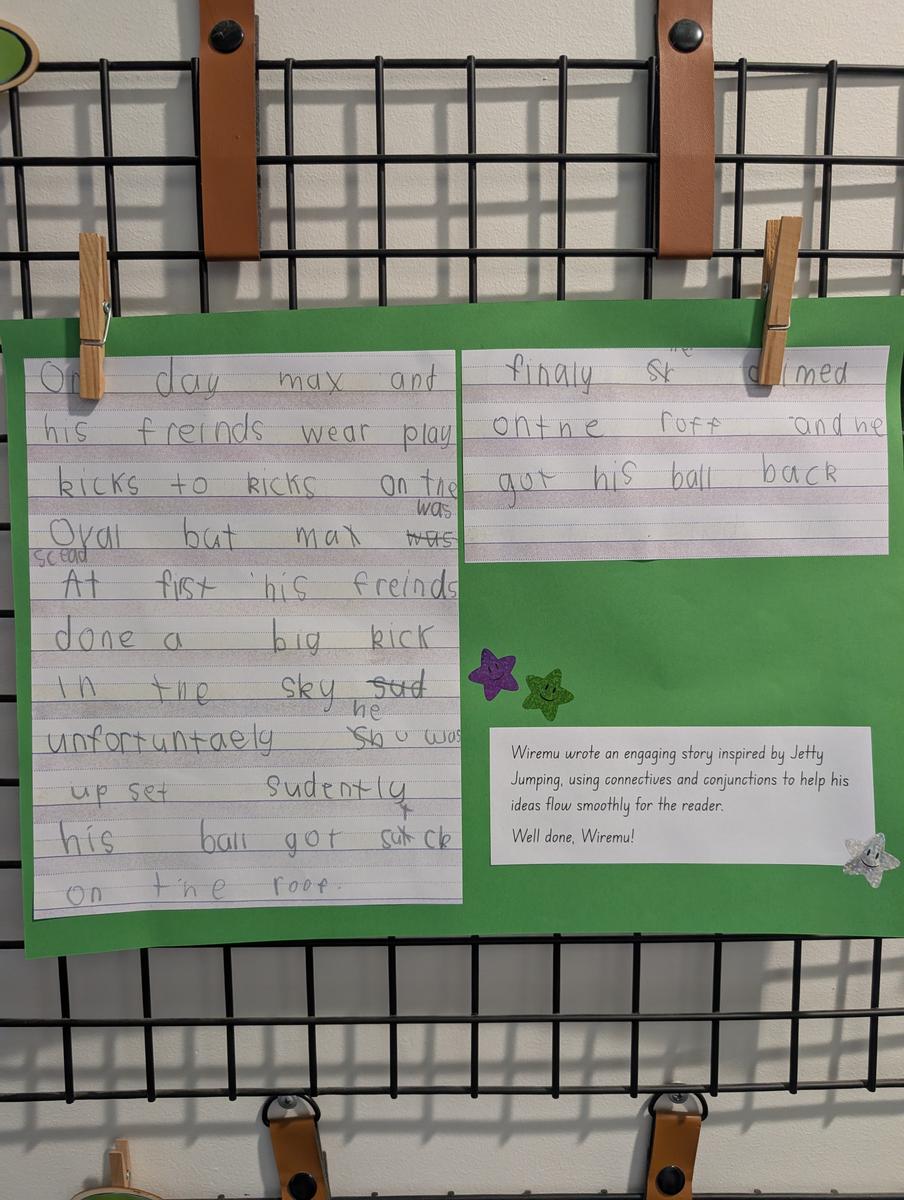 day max and
his freinds wear play
kicks to kicks on the
was
Oval but max was
scead
At first his freinds
done a big kick
in the sky sud
he
unfortuntaely was
up set sudently
his ball got
on the roof.
he
finaly
onthe roff and he
got his ball back
Wiremu wrote an engaging story inspired by Jetty
Jumping, using connectives and conjunctions to help his
ideas flow smoothly for the reader.
Well done, Wiremu!